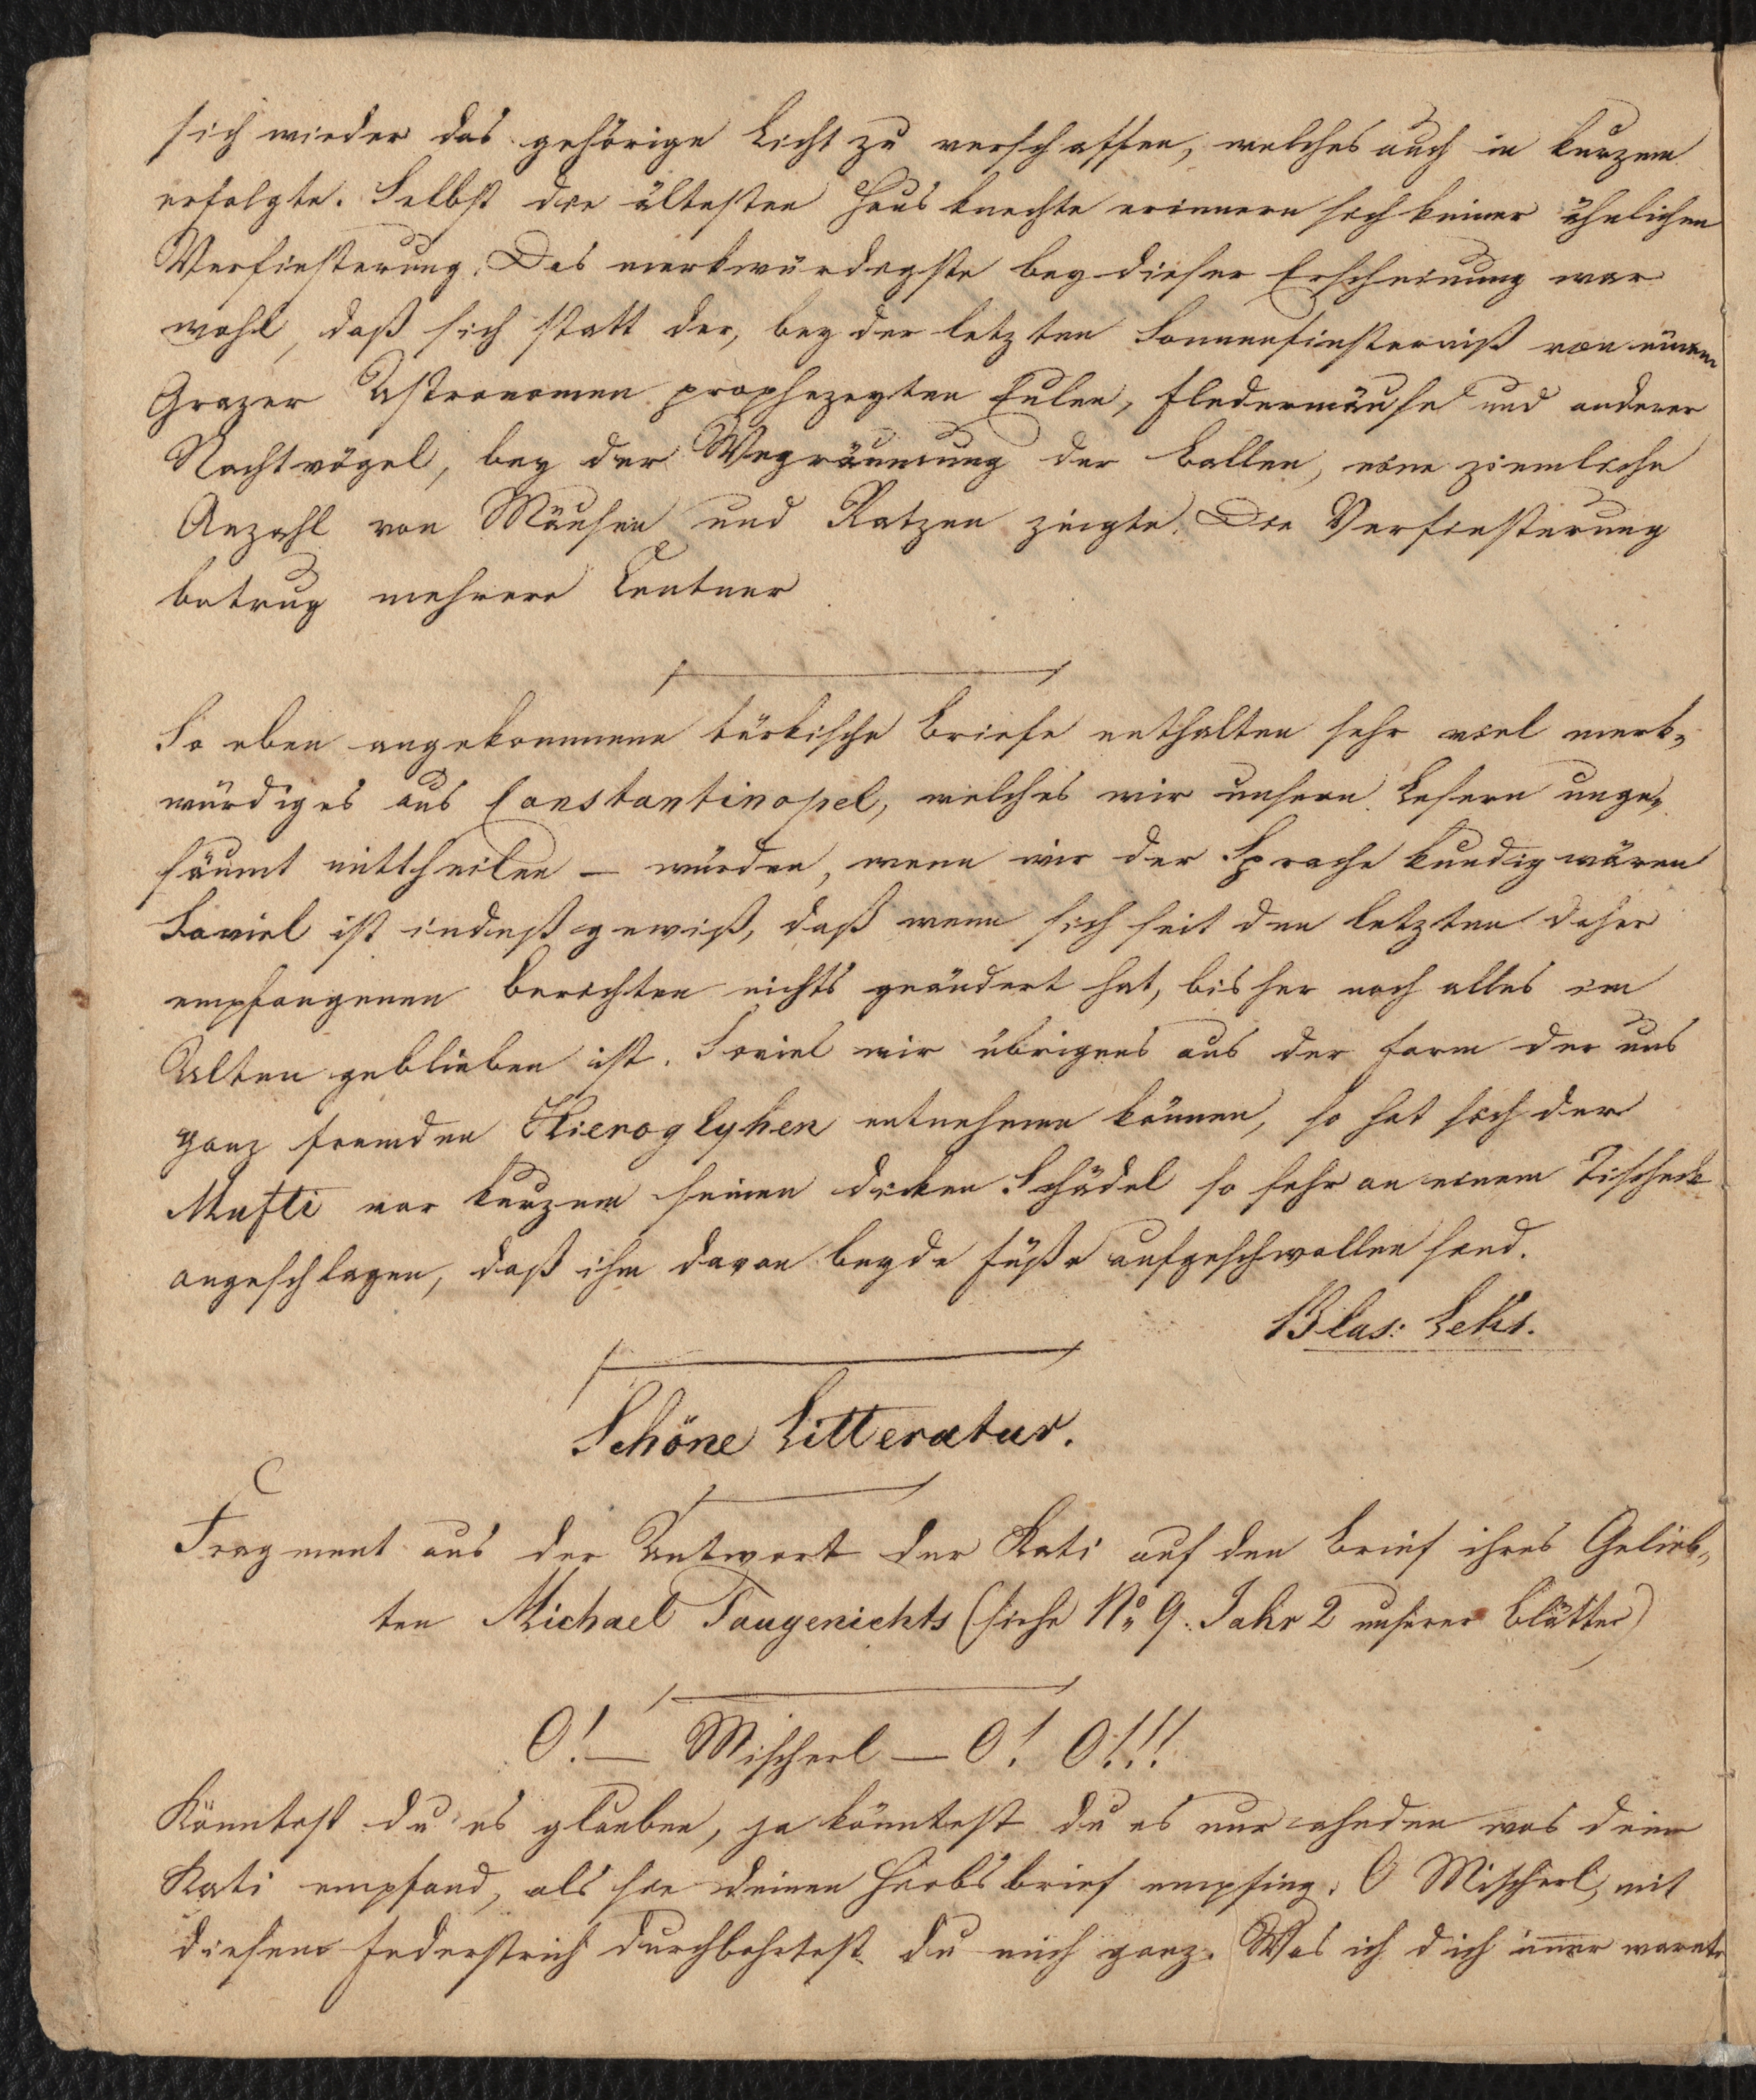 sich wieder das gehörige Licht zu verschaffen, welches auch in kurzem
erfolgte. Selbst die ältesten Hausknechte erinnern sich keiner ähnlichen
Verfinsterung. Das merkwürdigste bey dieser Erscheinung war
wohl, daß sich statt der, bey der letzten Sonnenfinsterniß von einem
Grazer Astronomen prophezeyten Eulen, Fledermäuse und anderer
Nachtvögel, bey der Wegräumung der Ballen, eine ziemliche
Anzahl von Mäusen und Ratzen zeigte. Die Verfinsterung
betrug mehrere Centner
So eben angekommene türkische Briefe enthalten sehr viel merk„
würdiges aus Constantinopel, welches wir unsern Lesern unge„
säumt mittheilen – würden, wenn wir der Sprache kundig wären
Soviel ist indeß gewiß, daß wenn sich seit den letzten daher
empfangenen Berichten nichts geändert hat, bisher noch alles im
Alten geblieben ist. Soviel wir übrigens aus der Form der uns
ganz fremden Hieroglyhen entnehmen können, so hat sich der
Mufti vor kurzem seinen dicken Schädel so sehr an einem Tischeck
angeschlagen, daß ihm davon beyde Füße aufgeschwollen sind.
Blas: Leks.
Schöne Litteratur.
Fragment aus der Antwort der Kati auf den Brief ihres Gelieb„
ten Michael Taugenichts (siehe No 9. Jahr 2 unserer Blätter)
O! – Mischerl – O! O!!!
Könntest du es glauben, ja könntest du es nur ahnden was deine
Kati empfand, als sie deinen Hiobsbrief empfing. O Mischerl, mit
diesem Federstrich durchbohrtest du mich ganz. Was ich dich immer warnte